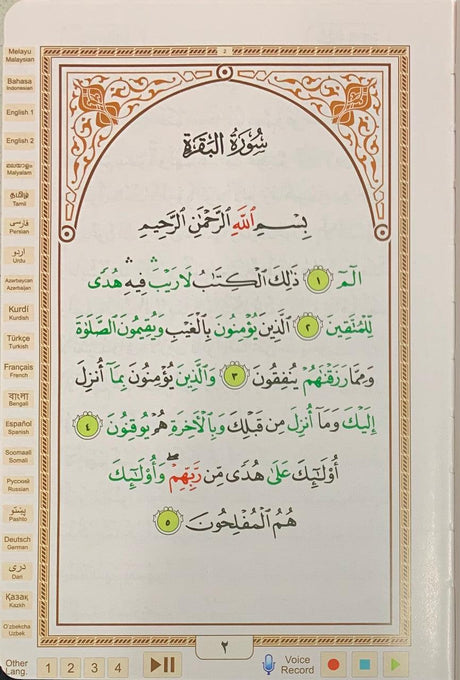 2
سُورَةُ البَقَرَةِ
بِسْمِ اللَّهِ الرَّحْمَٰنِ الرَّحِيمِ
الٓمٓ ١ ذَٰلِكَ الْكِتَابُ لَا رَيْبَ ۛ فِيهِ ۛ هُدًى
لِلْمُتَّقِينَ ٢ الَّذِينَ يُؤْمِنُونَ بِالْغَيْبِ وَيُقِيمُونَ الصَّلَوٰةَ
وَمِمَّا رَزَقْنَٰهُمْ يُنْفِقُونَ ٣ وَالَّذِينَ يُؤْمِنُونَ بِمَآ أُنْزِلَ
إِلَيْكَ وَمَآ أُنْزِلَ مِنْ قَبْلِكَ وَبِالْآخِرَةِ هُمْ يُوقِنُونَ ٤
أُولَٰٓئِكَ عَلَىٰ هُدًى مِّنْ رَبِّهِمْ ۖ وَأُولَٰٓئِكَ
هُمُ الْمُفْلِحُونَ ٥
٢
Melayu
Malaysian
Bahasa
Indonesian
English 1
English 2
മലയാളം
Malyalam
தமிழ்
Tamil
فارسی
Persian
اردو
Urdu
Azərbaycan
Azerbaijan
Kurdî
Kurdish
Türkçe
Turkish
Français
French
বাংলা
Bengali
Español
Spanish
Soomaali
Somali
Русский
Russian
پښتو
Pashto
Deutsch
German
دری
Dari
Қазақ
Kazkh
O'zbekcha
Uzbek
Other
Lang.
1 2 3 4
Voice
Record